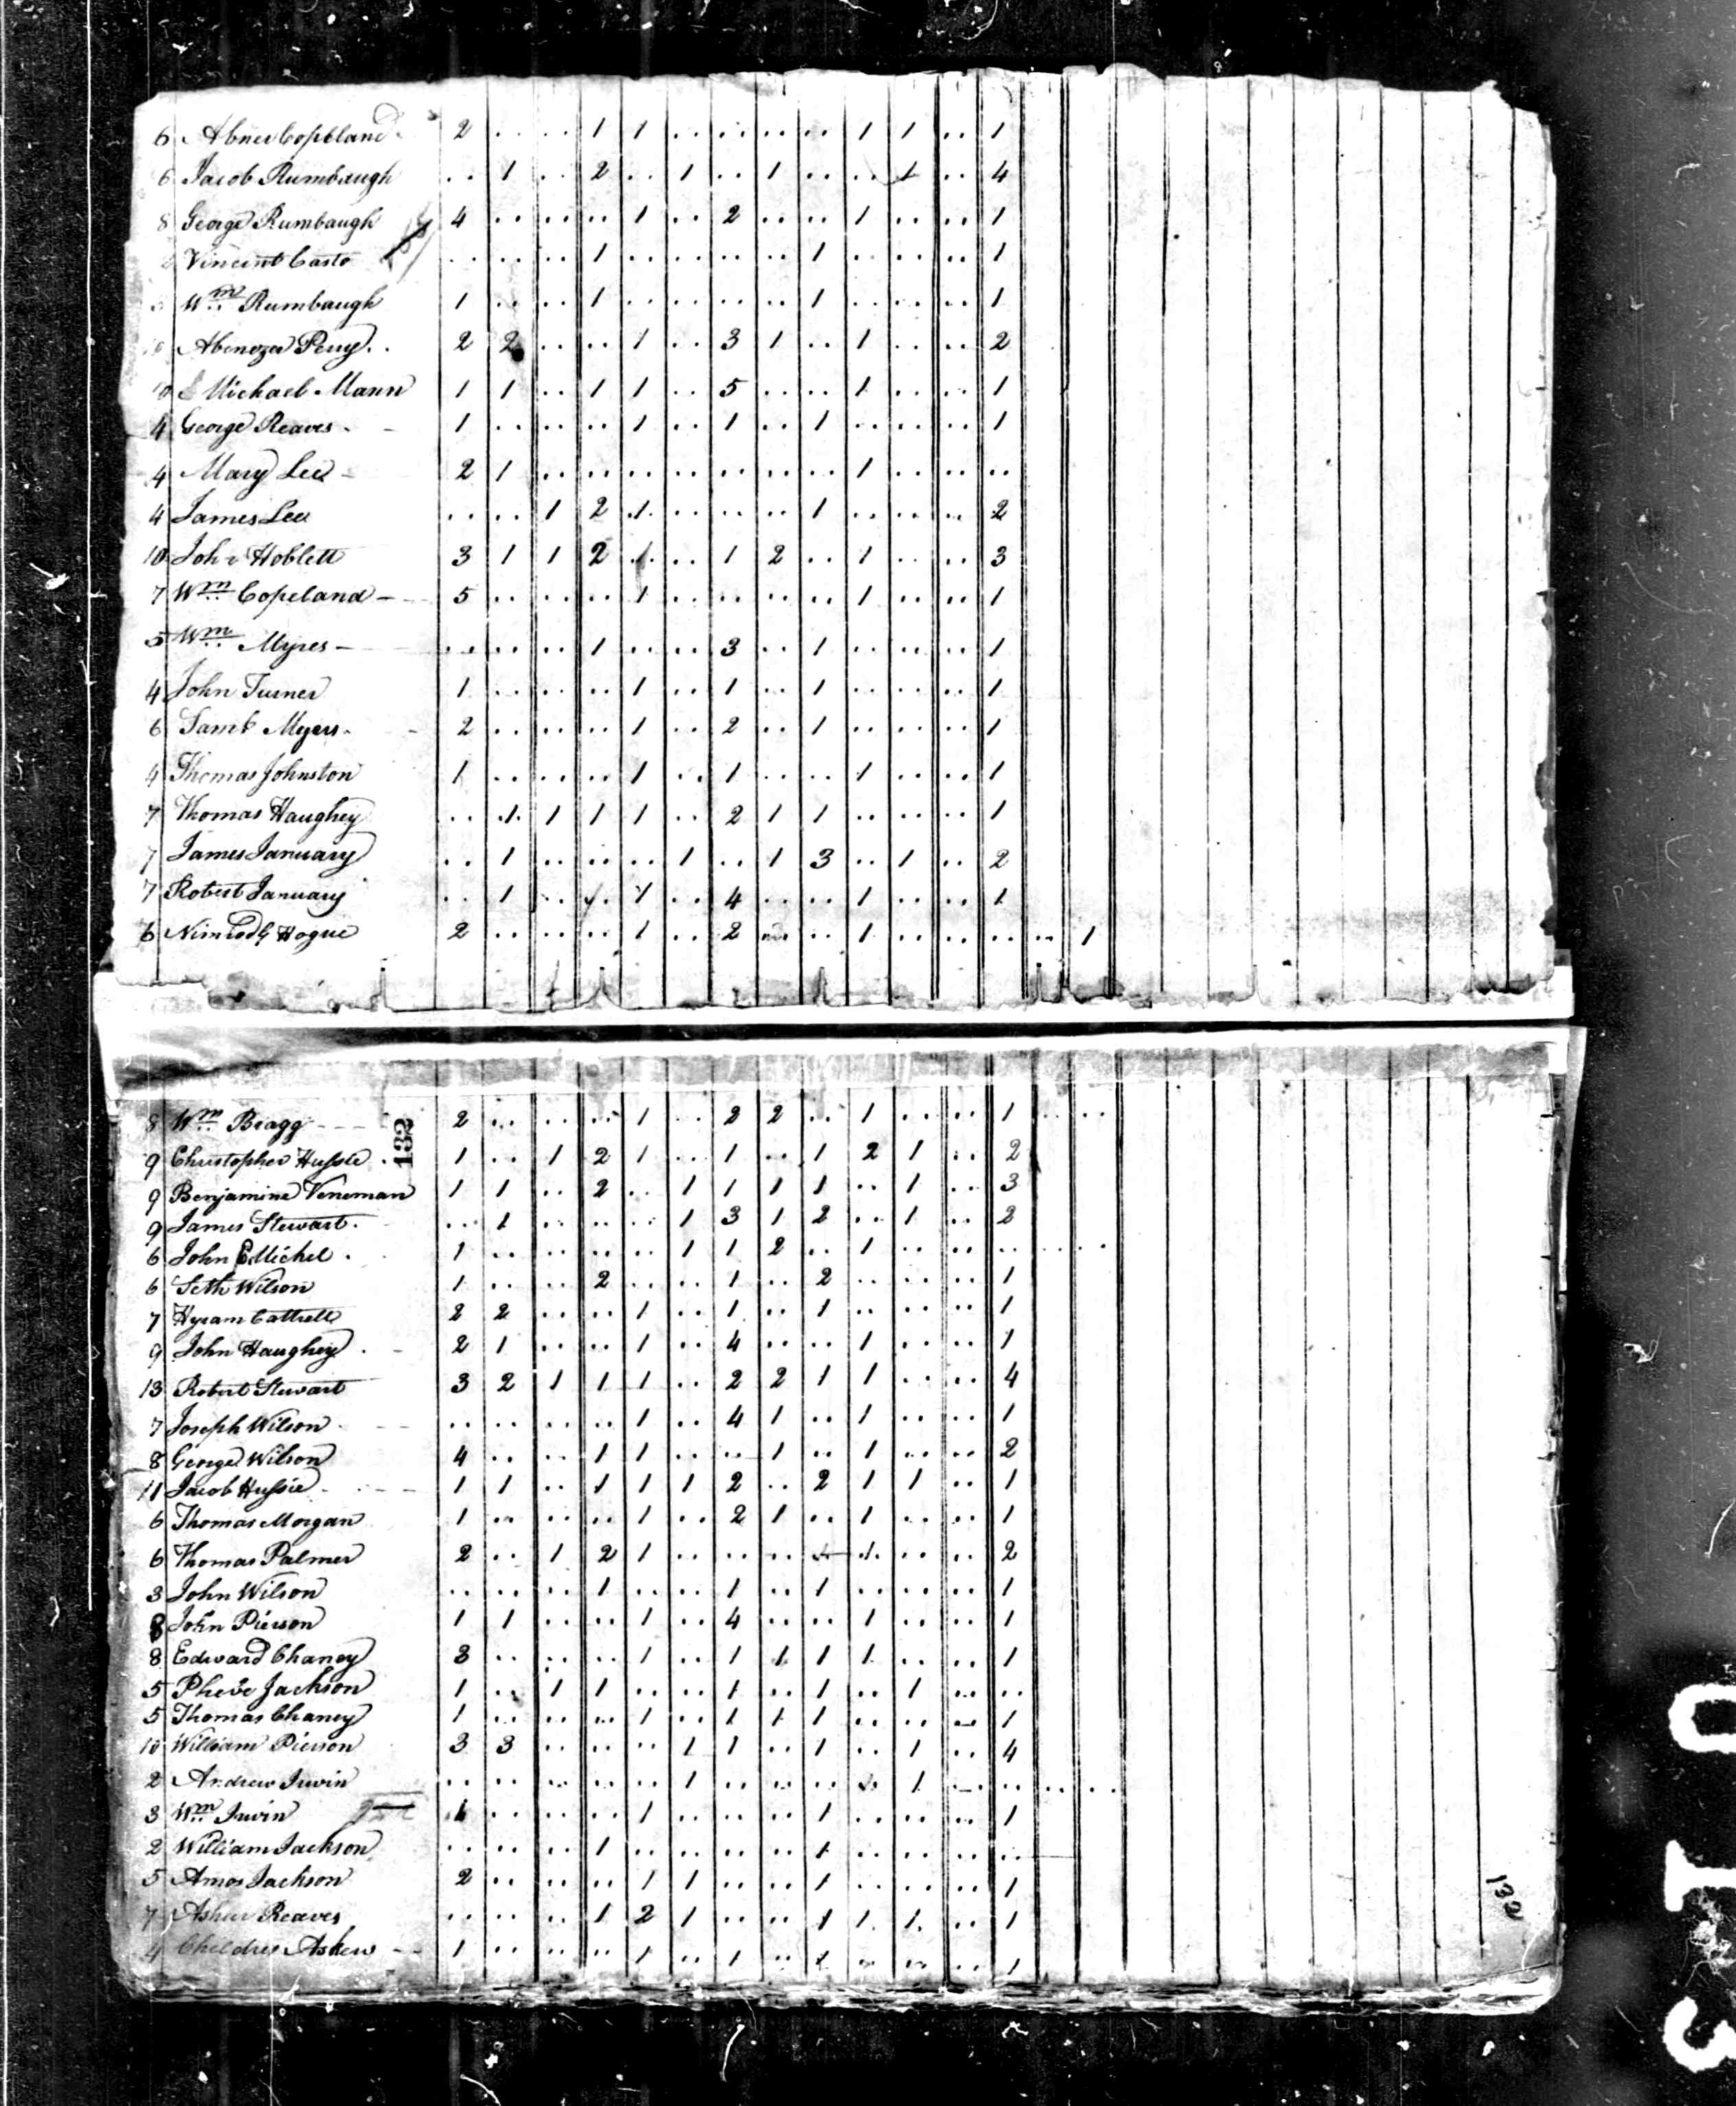 6 Abner Copeland 2 .. .. 1 1 .. .. .. .. 1 1 .. 1
6 Jacob Rumbaugh .. 1 .. 2 .. 1 .. 1 .. .. 1 .. 4
8 George Rumbaugh 4 .. .. .. 1 .. 2 .. .. 1 .. .. 1
Vincent Casto .. .. .. 1 .. .. .. .. 1 .. .. .. 1
Wm Rumbaugh 1 .. .. 1 .. .. .. .. 1 .. .. .. 1
Abenezer Perry 2 2 .. .. 1 .. 3 1 .. 1 .. .. 2
10 Michael Mann 1 1 .. 1 1 .. 5 .. .. 1 .. .. 1
4 George Reaves 1 .. .. .. 1 .. 1 .. 1 .. .. .. 1
4 Mary Lee 2 1 .. .. .. .. .. .. .. 1 .. .. ..
4 James Lee .. .. 1 2 1 .. .. .. 1 .. .. .. 2
10 John Hoblett 3 1 1 2 1 .. 1 2 .. 1 .. .. 3
7 Wm Copeland 5 .. .. .. 1 .. .. .. .. 1 .. .. 1
5 Wm Myres .. .. .. 1 .. .. 3 .. 1 .. .. .. 1
4 John Turner 1 .. .. .. 1 .. 1 .. 1 .. .. .. 1
6 Saml Myers 2 .. .. .. 1 .. 2 .. 1 .. .. .. 1
4 Thomas Johnston 1 .. .. .. 1 .. 1 .. .. 1 .. .. 1
7 Thomas Haughey .. 1 1 1 1 .. 2 1 1 .. .. .. 1
7 James January .. 1 .. .. .. 1 .. 1 3 .. 1 .. 2
7 Robert January .. 1 .. .. 1 .. 4 .. .. 1 .. .. 1
6 Nimrod G Hogue 2 .. .. .. 1 .. 2 .. .. 1 .. .. .. .. 1
132
8 Wm Bragg 2 .. .. .. 1 .. 2 2 .. 1 .. .. 1 .. ..
9 Christopher Hussie 1 .. 1 2 1 .. 1 .. 1 2 1 .. 2
9 Benjamine Veneman 1 1 .. 2 .. 1 1 1 1 .. 1 .. 3
9 James Stewart .. 1 .. .. .. 1 3 1 2 .. 1 .. 2
6 John E Michel 1 .. .. .. .. 1 1 2 .. 1 .. .. .. .. ..
6 Seth Wilson 1 .. .. 2 .. .. 1 .. 2 .. .. .. 1
7 Hyram Cattrell 2 2 .. .. 1 .. 1 .. 1 .. .. .. 1
9 John Haughey 2 1 .. .. 1 .. 4 .. .. 1 .. .. 1
13 Robert Stewart 3 2 1 1 1 .. 2 2 1 1 .. .. 4
7 Joseph Wilson .. .. .. .. 1 .. 4 1 .. 1 .. .. 1
8 George Wilson 4 .. .. 1 1 .. .. 1 .. 1 .. .. 2
11 Jacob Hussie 1 1 .. 1 1 1 2 .. 2 1 1 .. 1
6 Thomas Morgan 1 .. .. .. 1 .. 2 1 .. 1 .. .. 1
6 Thomas Palmer 2 .. 1 2 1 .. .. .. .. 1 .. .. 2
3 John Wilson .. .. .. 1 .. .. 1 .. 1 .. .. .. 1
8 John Pierson 1 1 .. .. 1 .. 4 .. .. 1 .. .. 1
8 Edward Chaney 3 .. .. .. 1 .. 1 1 1 1 .. .. 1
5 Phebe Jackson 1 .. 1 1 .. .. 1 .. 1 .. 1 .. ..
5 Thomas Chaney 1 .. .. .. 1 .. 1 1 1 .. .. .. 1
10 William Pierson 3 3 .. .. .. 1 1 .. 1 .. 1 .. 4
2 Andrew Irwin .. .. .. .. .. 1 .. .. .. .. 1 .. .. .. ..
3 Wm Irwin 1 .. .. .. 1 .. .. .. 1 .. .. .. 1
2 William Jackson .. .. .. 1 .. .. .. .. 1 .. .. .. ..
5 Amos Jackson 2 .. .. .. 1 1 .. .. 1 .. .. .. 1
7 Asher Reaves .. .. .. 1 2 1 .. .. 1 1 1 .. 1
4 Childres Askew 1 .. .. .. 1 .. 1 .. 1 .. .. .. 1
132